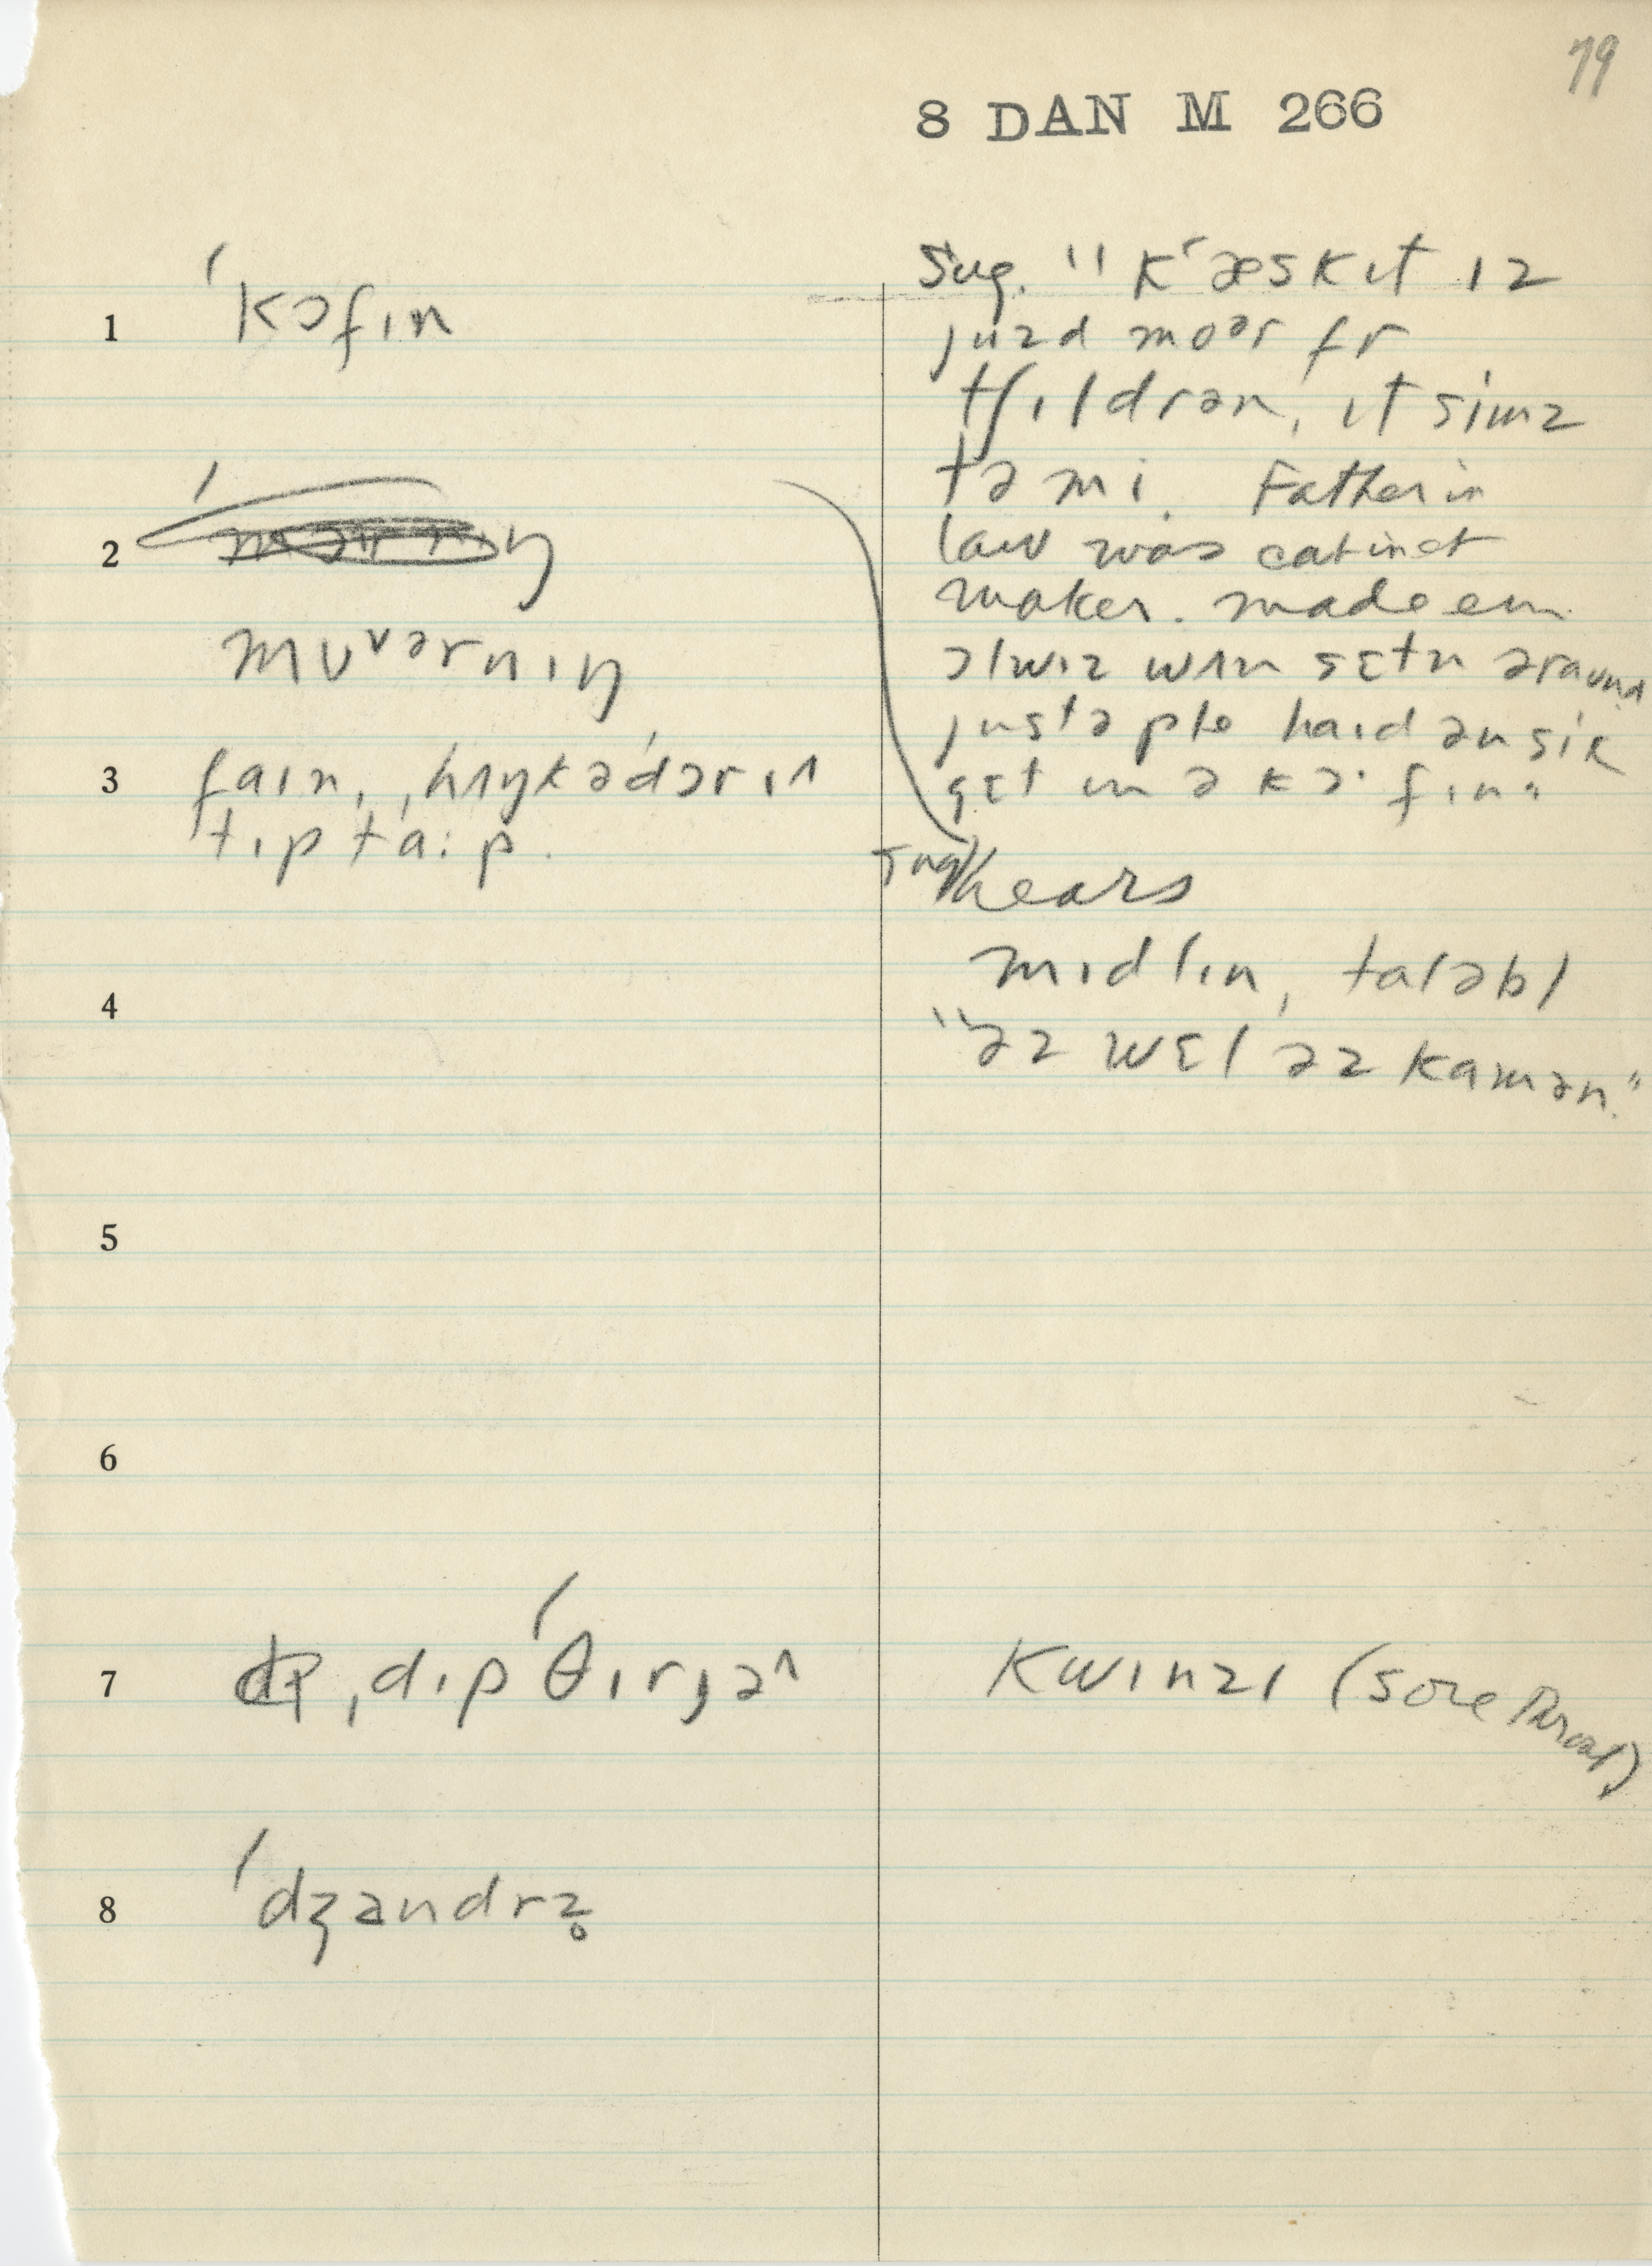 79
8 DAN M 266
1 ˈkɔfɪn
Sug. "kˈæskɪt ɪz
juzd moər fr
tʃɪldrən, ɪt simz
tə mi. Father in
law was cabinet
maker. made em
ɔlwɪz wʌn sɛtn əraund
justə ple haɪd ən sik
gɛt ɪn ə kɔ·fɪn"
2
mʊᵛərnɪŋ
3 faɪn, ˌhʌŋkədɔrɪ^
tɪp ta:p.
Sug hears
mɪdlɪn, taləbl
4
"əz wɛl əz kamən."
5
6
7 ˌdɪpˈθɪrjə^
kwɪnzɪ (sore throat)
8 ˈdʒandrz̥